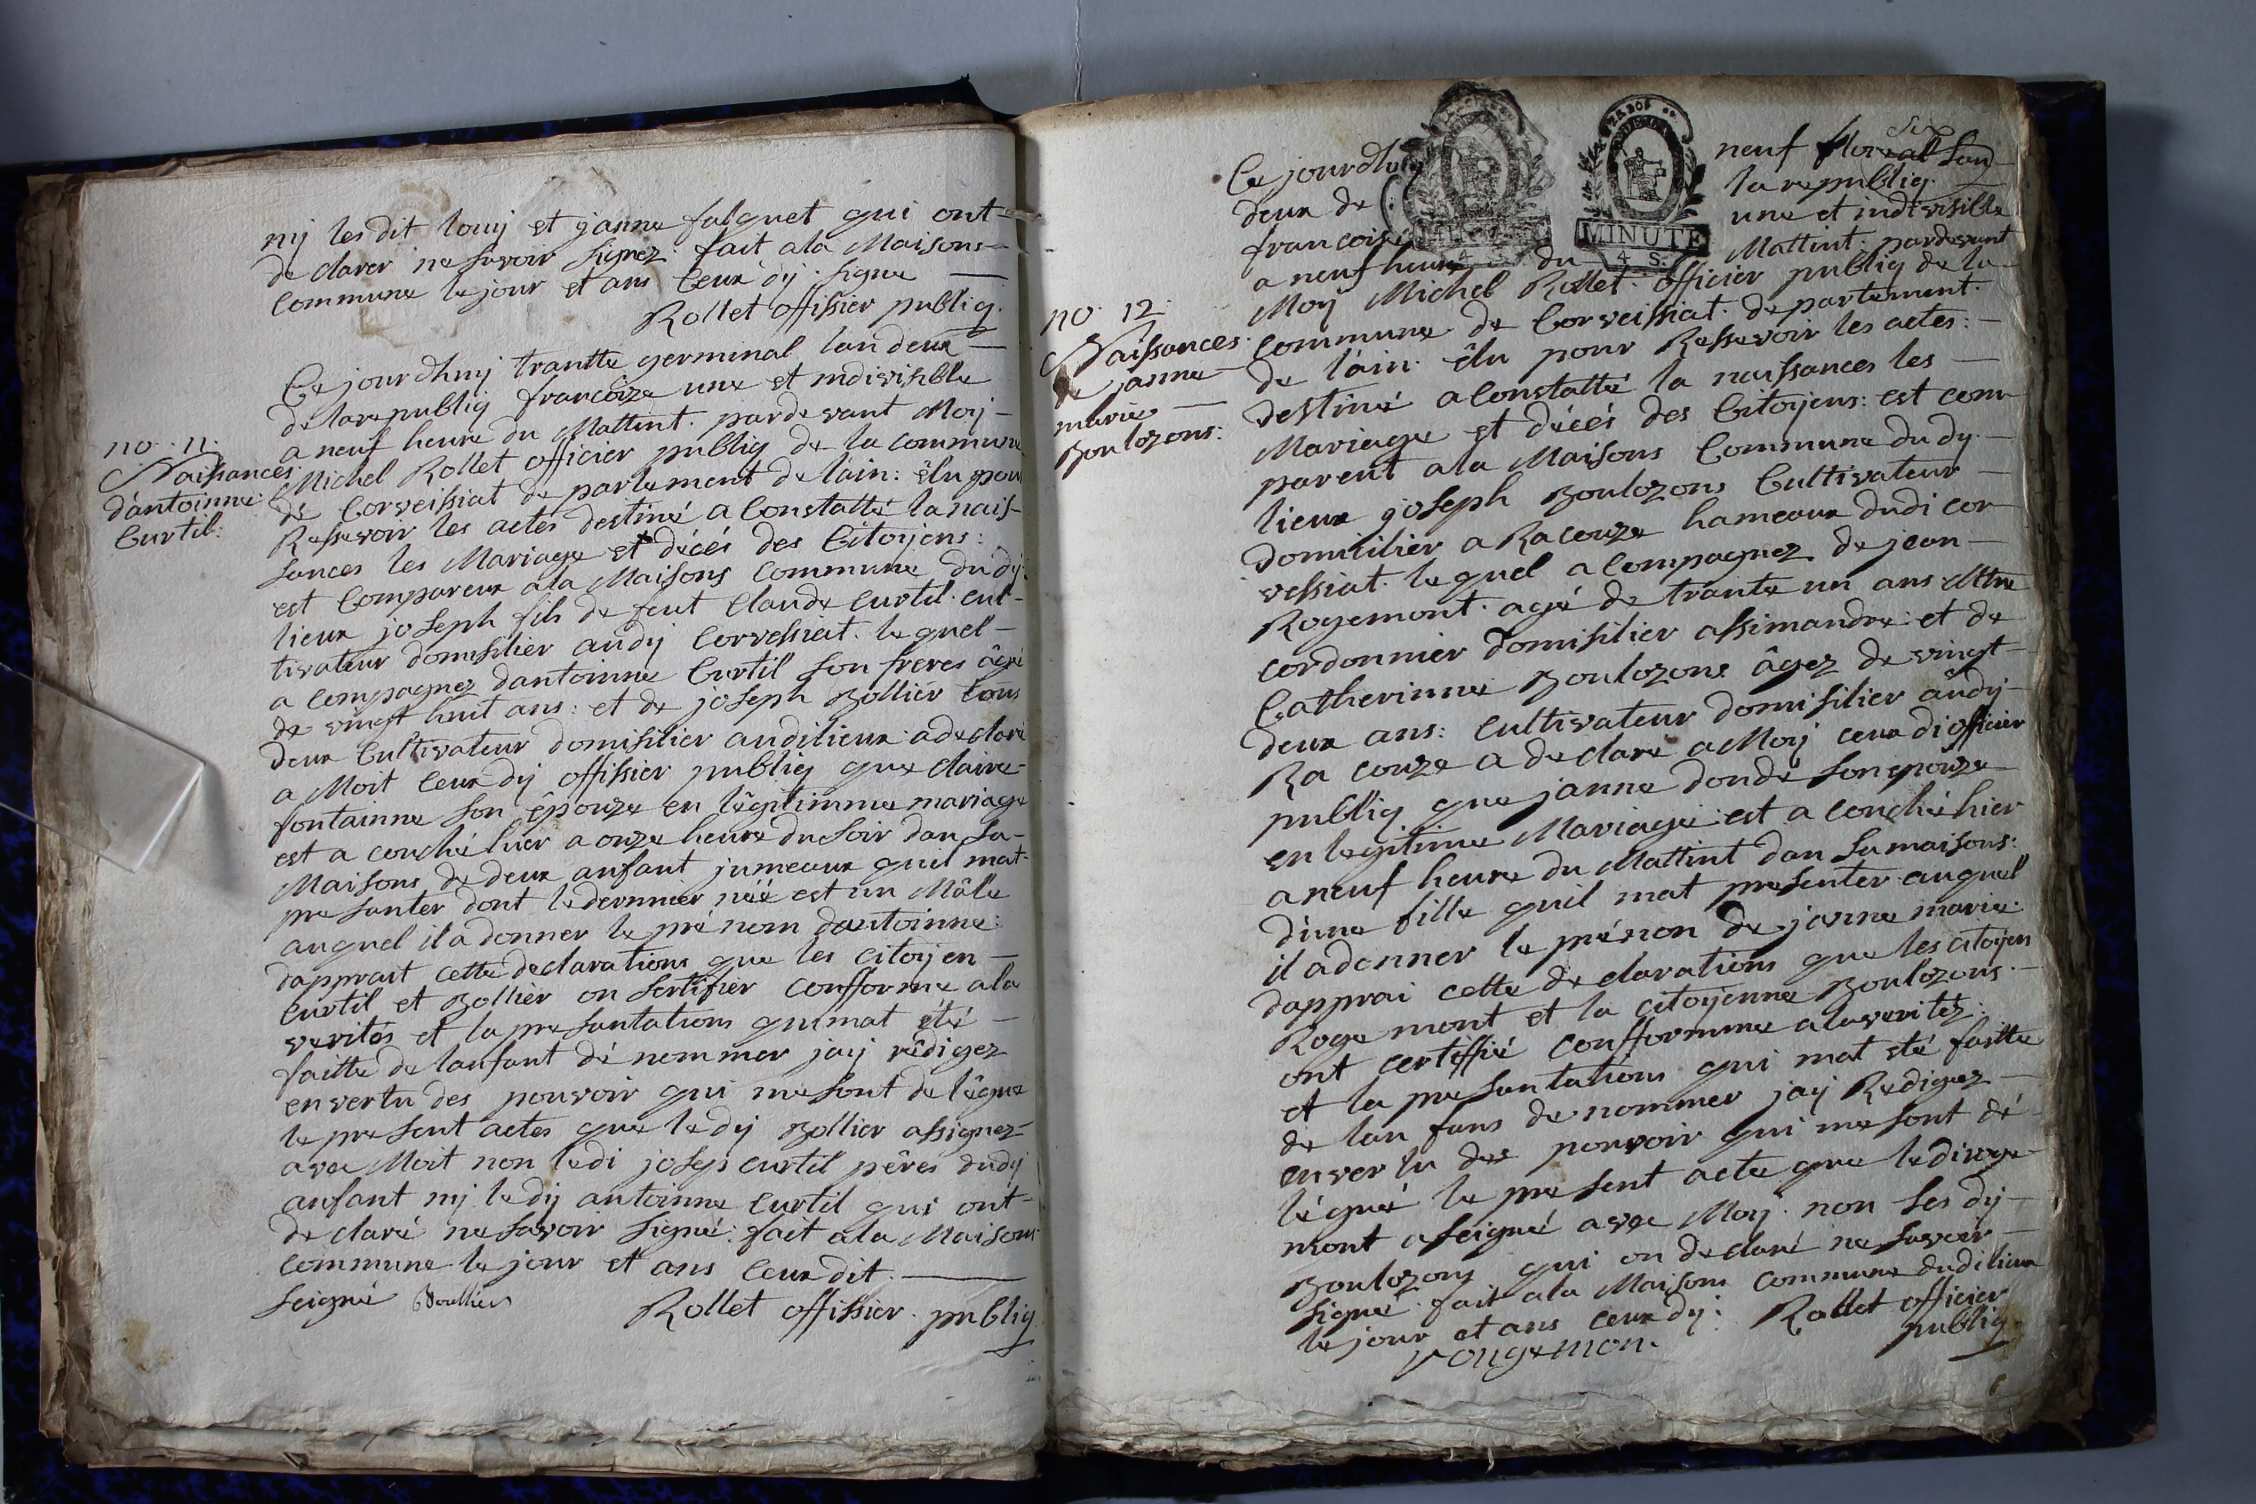 ny les dit louy et janne falquet qui ont
de clarer ne savoir signez. fait a la Maisons
commune le jour et ans ceux dy. signe
Rollet offisier publiq.
Ce jourdhuy trantte germinal lan deux
de la republiq francoize une et indivisible
a neuf heure du Mattint. par devant Moy
no. 11.
Naissances
dantoinne
Curtil:
Michel Rollet officier publiq de la commune
de Corveissiat de partement de lain: élu pour
Ressevoir les actes destiné a Constatté la nais-
sances les Mariage et décés des Citoyens:
est Compareux a la Maisons Commune du dy
lieux joseph fils de feut Claude Curtil. cul-
tivateur domisilier audy Corvessiat. le quel
a compagnez dantoinne Curtil son freres âgé
de vingt huit ans: et de joseph Bollier tous
deux Cultivateur domisilier audilieux a declaré
a Moit ceux dy offisier publiq que claire
fontainne son épouze en légitimme mariage
est a couché hier a onze heure du soir dan sa
Maisons de deux anfant jumeaux quil mat
pre santer dont le dernnier néé est un Mâlle
auquel il a donner le pré nom dantoinne:
dapprait cette declarations que les citoyen
Curtil et Bollier on sertifier confforme a la
verités et la presantations qui mat été
faitte de lanfant dé nommer jay rédigez
en vertu des pouvoir qui me sont de légue
le present actes que le dy Bollier assignez
avec Moit non ledi josep curtil péres dudy
anfant ny le dy antoinne Curtil qui ont
de claré ne savoir signé: fait a la Maisons
commune le jour et ans ceux dit.
seigné Boullier
Rollet offisier. publiq
Ce jourdhuy neuf floreal six lan
deux de la republiq.
francoize une et indivisible
MINUTE
4 S.
a neuf heure du Mattint. pardevant
Moy Michel Rollet. officier publiq de la
no. 12.
Naissances.
de janne
marie
Boulozons:
commune de Corveissiat. de partement.
de l'ain. élu pour Ressevoir les actes:
destiné a Constatté la naissances les
Mariage et décés des Citoyens: est com
parent a la Maisons Commune du dy
lieux joseph Boulozons Cultivateur
domicilier a Racouze hameaux dudi cor
vessiat. le quel a compagnez de jean
Rogemont. agé de trante un ans Mtre
cordonnier domisilier assimandre: et de
Catherinne Boulozons âgez de vingt
deux ans: cultivateur domisilier audy
Ra couze a de claré a Moy ceux di officier
publiq que janne dondé son epouze
en legitime Mariage est a couché hier
a neuf heure du Mattint dan sa maisons:
dune fille quil mat presenter auquel
il a donner le prénon de janne marie.
dapprai cette de clarations que les citoyen
Roge mont et la citoyenne Boulozons.
ont certiffié confformme a la veritéz:
et la pre santations qui mat été faitte
de lan fans de nommer jay Redigez
en ver tu des pouvoir qui me sont dé
légué le pre sent acte que le diroge
mont a seigné avec Moy. non les dy
Boulozons qui on de claré ne savoir
signé. fait a la Maisons commune dudilieux
le jour et ans ceux dy: Rollet officier
publiq.
rougemon.